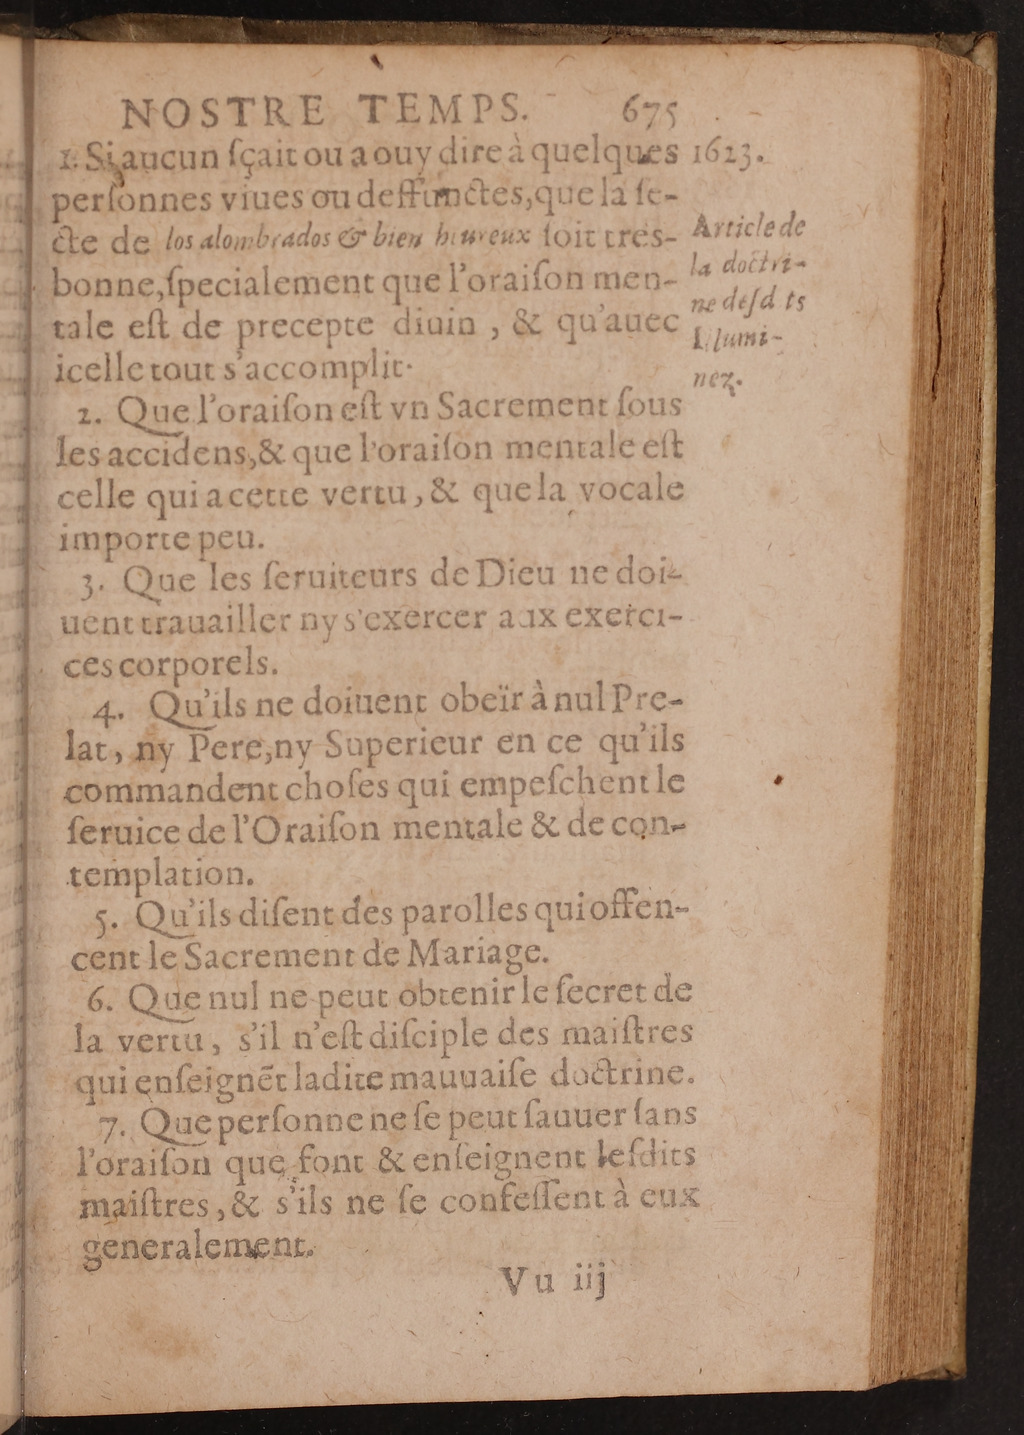 NOSTRE TEMPS. 675
1. Si aucun ſçait ou a ouy dire à quelques
perſonnes viues ou deffunctes, que la ſe-
cte de los alombrados & bien heureux ſoit tres-
bonne, ſpecialement que l'oraiſon men-
tale eſt de precepte diuin, & qu'auec
icelle tout s'accomplit.
2. Que l'oraiſon eſt vn Sacrement ſous
les accidens, & que l'oraiſon mentale eſt
celle qui a cette vertu, & que la vocale
importe peu.
3. Que les ſeruiteurs de Dieu ne doi-
uent trauailler ny s'exercer aux exerci-
ces corporels.
4. Qu'ils ne doiuent obeïr à nul Pre-
lat, ny Pere, ny Superieur en ce qu'ils
commandent choſes qui empeſchent le
ſeruice de l'Oraiſon mentale & de con-
templation.
5. Qu'ils diſent des parolles qui offen-
cent le Sacrement de Mariage.
6. Que nul ne peut obtenir le ſecret de
la vertu, s'il n'eſt diſciple des maiſtres
qui enſeignẽt ladite mauuaiſe doctrine.
7. Que perſonne ne ſe peut ſauuer ſans
l'oraiſon que font & enſeignent leſdits
maiſtres, & s'ils ne ſe confeſſent à eux
generalement.
Vu iij
1623.
Article de
la doctri-
ne deſd ts
Illumi-
nez.